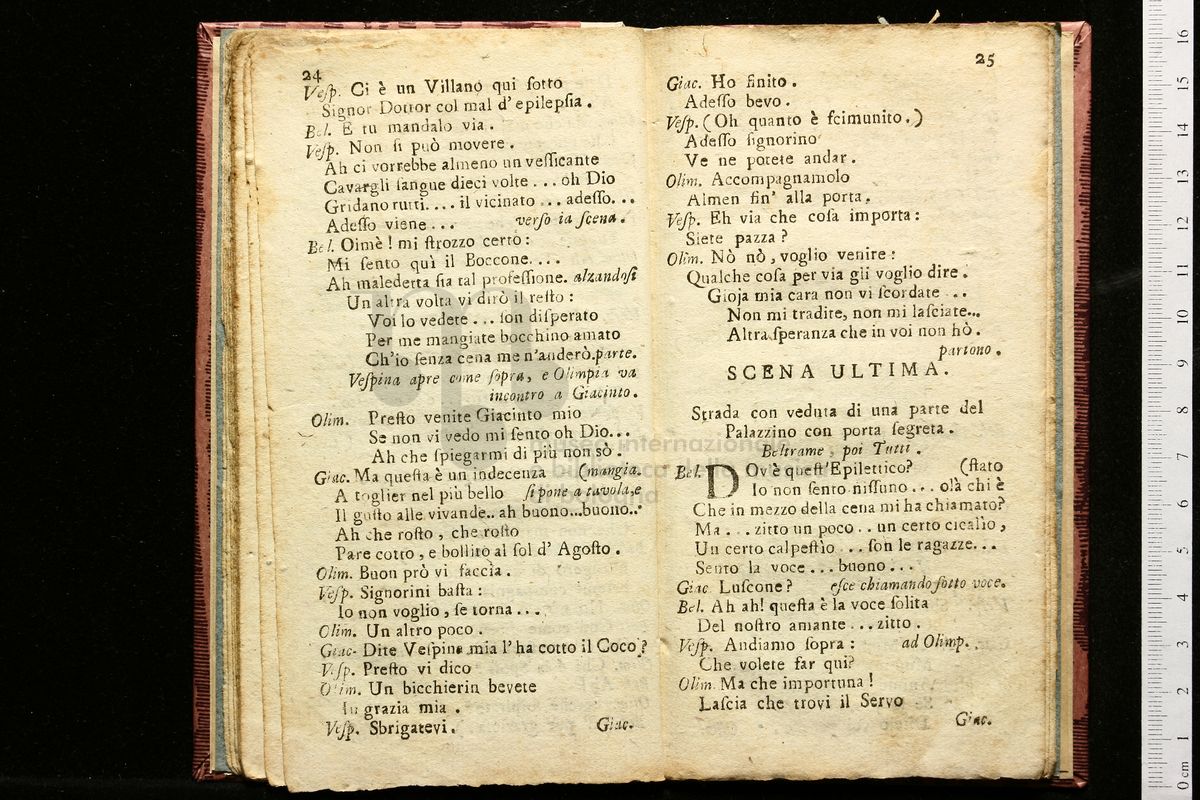 24
Veſp. Ci è un Villano qui ſotto
Signor Dottor col mal d' epilepſia.
Bel. E tu mandalo via.
Veſp. Non ſi può movere.
Ah ci vorrebbe almeno un veſſicante
Cavargli ſangue dieci volte... oh Dio
Gridano tutti.... il vicinato... adeſſo...
Adeſſo viene... verſo la ſcena.
Bel. Oimè! mi ſtrozzo certo:
Mi ſento quì il Boccone....
Ah maledetta ſia tal profeſſione. alzandoſi
Un altra volta vi dirò il reſto:
Voi lo vedete... ſon diſperato
Per me mangiate bocchino amato
Ch'io ſenza cena me n'anderò. parte.
Veſpina apre come ſopra, e Olimpia va
incontro a Giacinto.
Olim. Preſto venite Giacinto mio
Se non vi vedo mi ſento oh Dio...
Ah che ſpiegarmi di più non sò.
Giac. Ma queſta è un indecenza (mangia.
A toglier nel più bello ſi pone a tavola, e
Il guſto alle vivande.. ah buono...buono...
Ah che roſto, che roſto
Pare cotto, e bollito al ſol d' Agoſto.
Olim. Buon prò vi faccia.
Veſp. Signorini baſta:
Io non voglio, ſe torna....
Olim. Un altro poco.
Giac. Dite Veſpina mia l' ha cotto il Coco?
Veſp. Preſto vi dico
Olim. Un bicchierin bevete
In grazia mia.
Veſp. Sbrigatevi.
Giac.
25
Giac. Ho finito.
Adeſſo bevo.
Veſp. (Oh quanto è ſcimunito.)
Adeſſo ſignorino
Ve ne potete andar.
Olim. Accompagnamolo
Almen fin' alla porta.
Veſp. Eh via che coſa importa:
Siete pazza?
Olim. Nò nò, voglio venire:
Qualche coſa per via gli voglio dire.
Gioja mia cara non vi ſcordate...
Non mi tradite, non mi laſciate...
Altra ſperanza che in voi non hò.
partono.
SCENA ULTIMA.
Strada con veduta di una parte del
Palazzino con porta ſegreta.
Beltrame, poi Tutti.
Bel. DOv'è queſt'Epilettico? (ſtato
Io non ſento niſſuno... olà chi è
Che in mezzo della cena mi ha chiamato?
Ma... zitto un poco.. un certo cicalìo,
Un certo calpeſtìo... ſon le ragazze...
Sento la voce... buono...
Giac. Luſcone? eſce chiamando ſotto voce.
Bel. Ah ah! queſta è la voce ſolita
Del noſtro amante... zitto.
Veſp. Andiamo ſopra: ad Olimp.
Che volete far qui?
Olim. Ma che importuna!
Laſcia che trovi il Servo
Giac.
museo internazionale
biblioteca
bologna
0 cm
1
2
3
4
5
6
7
8
9
10
11
12
13
14
15
16